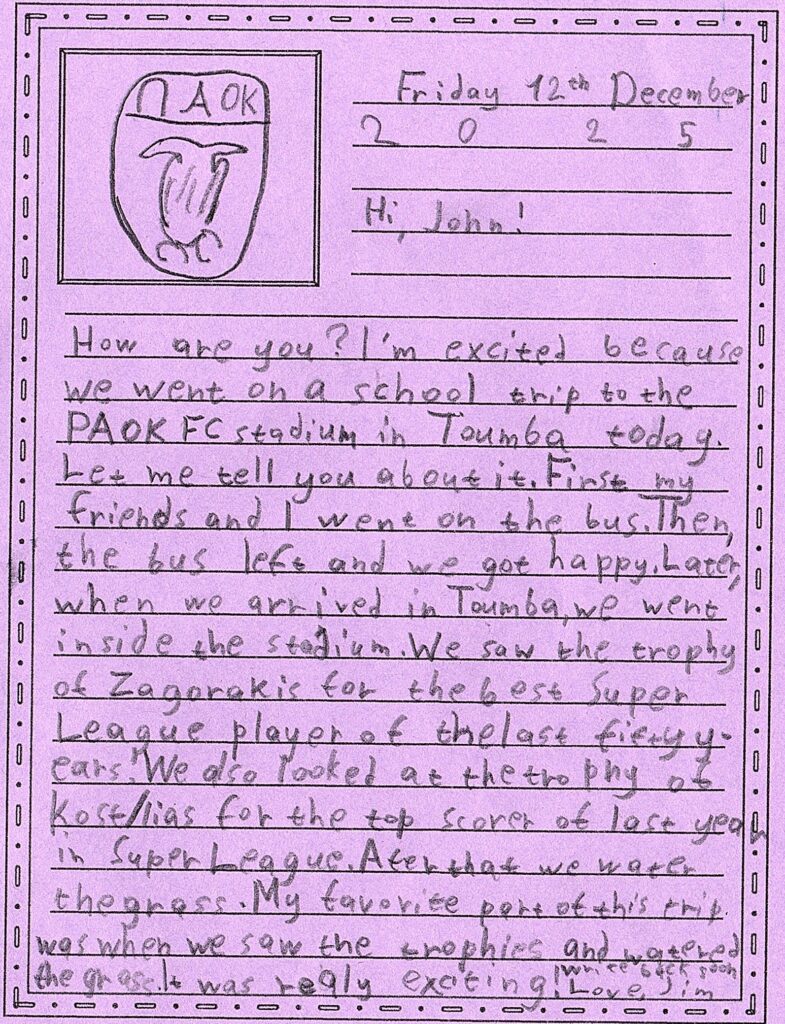 ΠΑΟΚ
Friday 12th December
2 0 2 5
Hi, John!
How are you? I'm excited because
we went on a school trip to the
PAOK FC stadium in Toumba today.
Let me tell you about it. First my
friends and I went on the bus. Then,
the bus left and we got happy. Later,
when we arrived in Toumba, we went
inside the stadium. We saw the trophy
of Zagorakis for the best Super
League player of the last fiety y-
ears. We also looked at the trophy of
for the top scorer of last year
in Super League. Ater that we water
the grass. My favorite part of this trip
was when we saw the trophies and watered
the grass. It was realy exciting! write back soon
Love, Jim